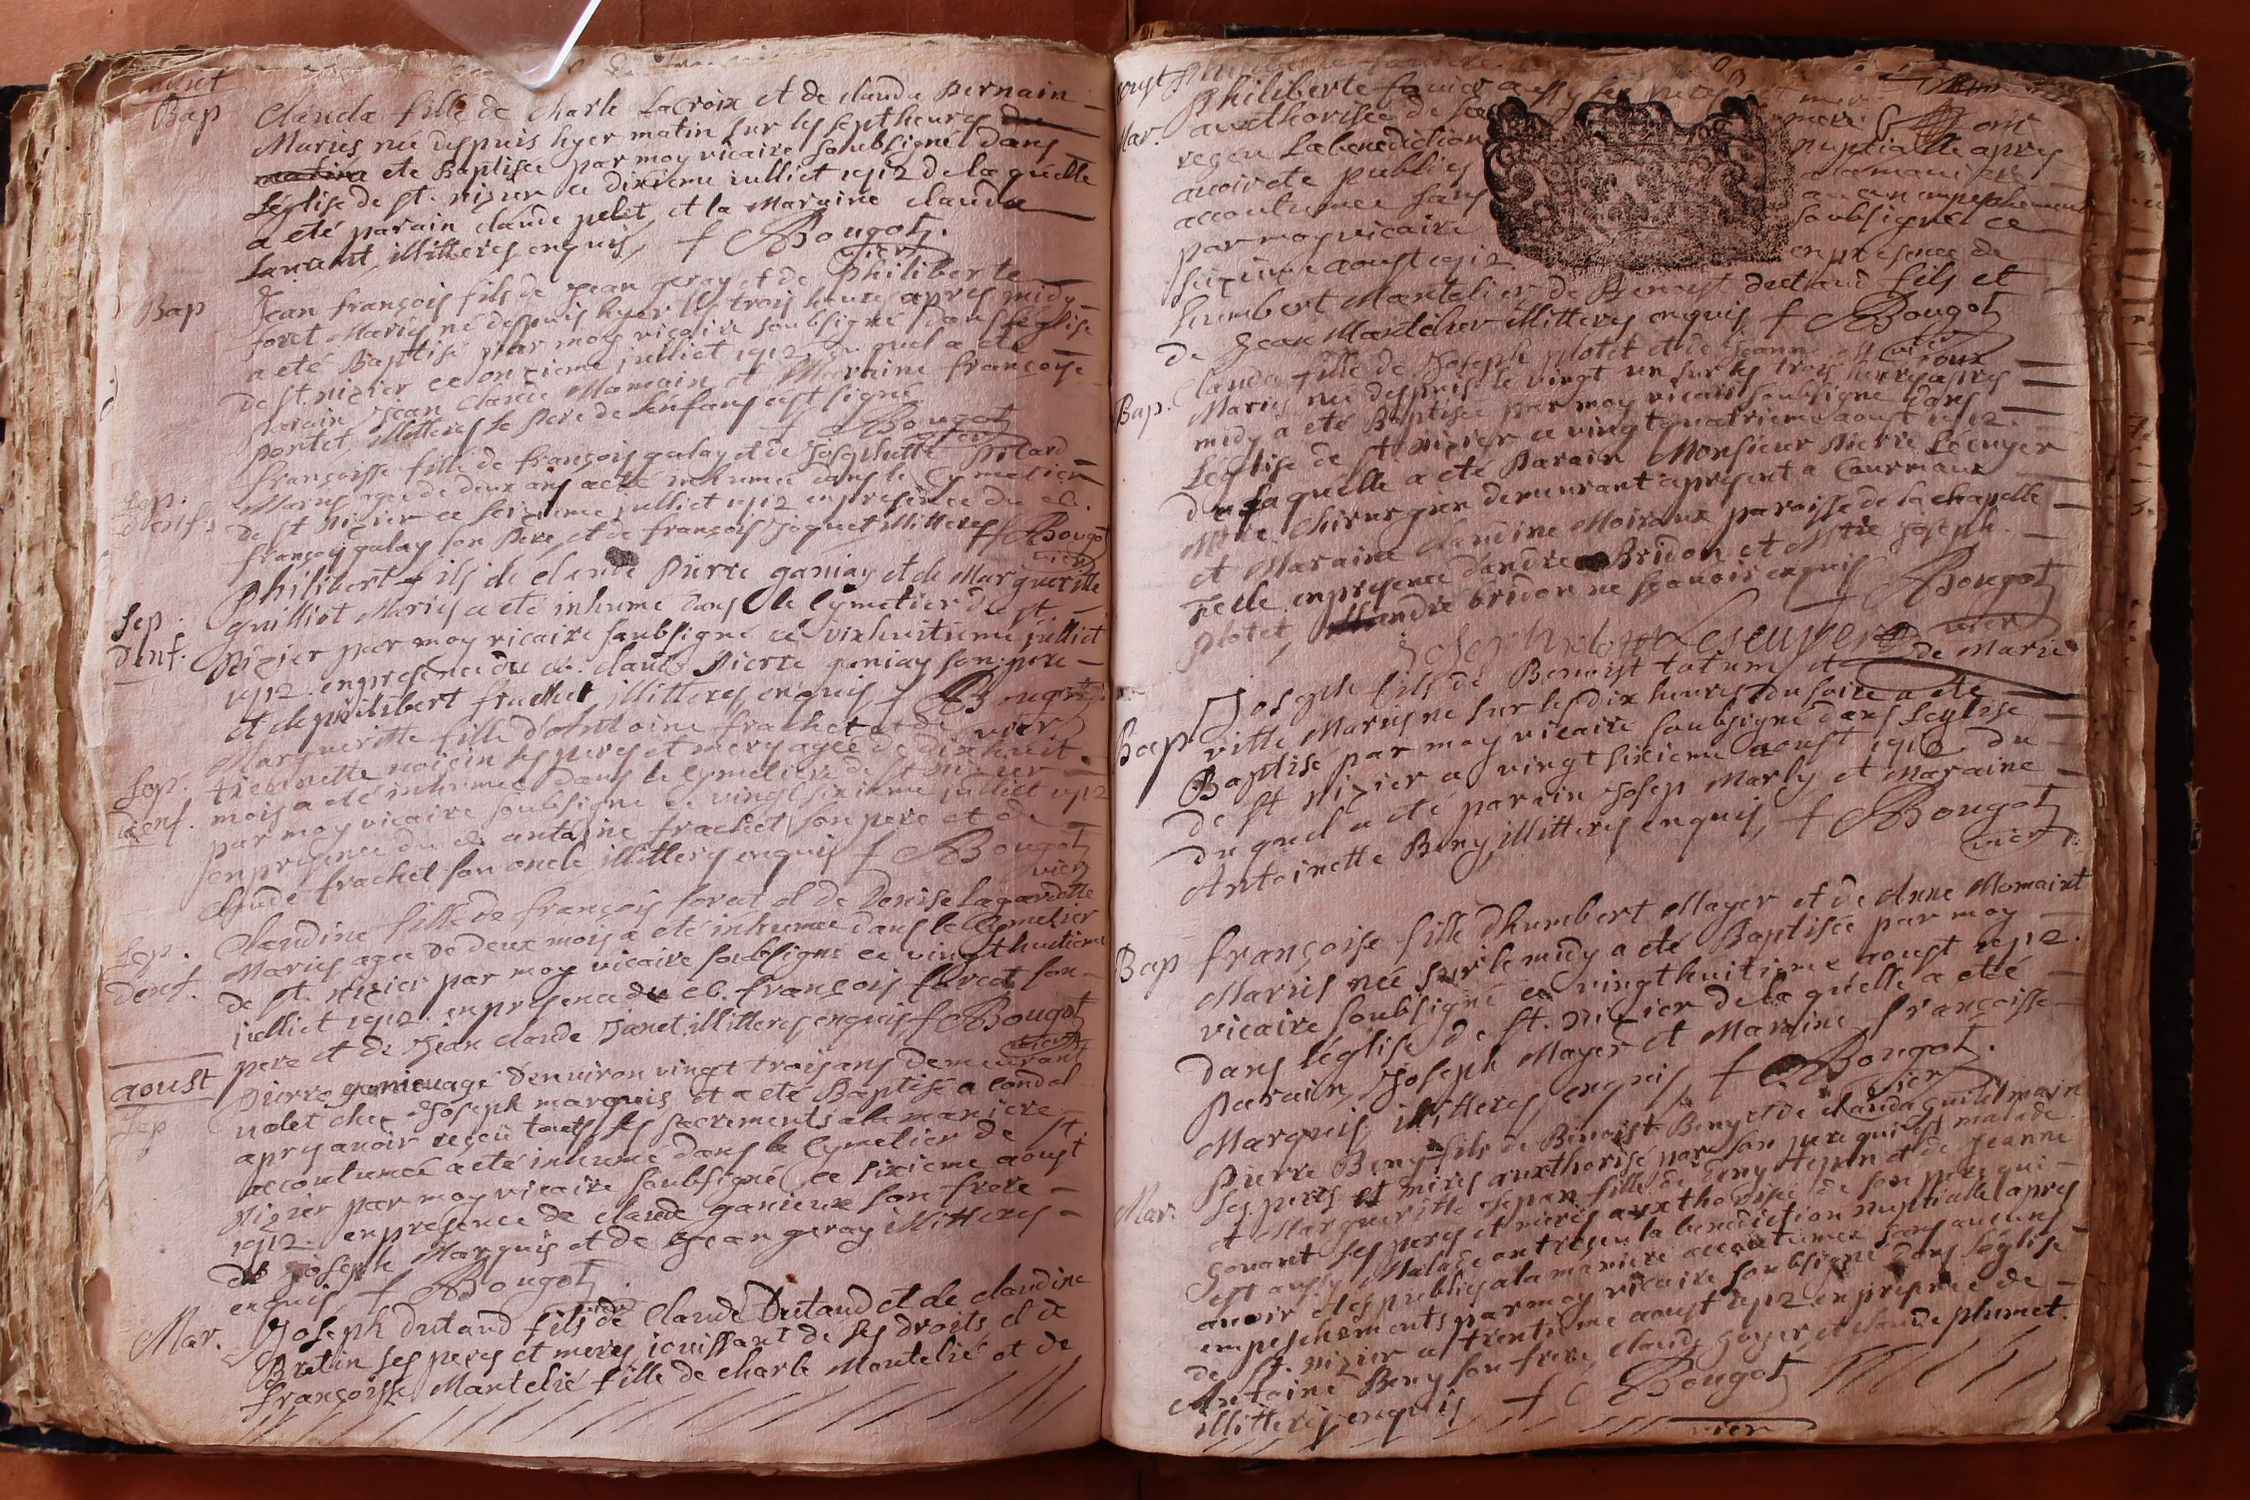 Bap
Clauda fille de Charle Lacroix et de clauda Bernain
Mariés née despuis hyer matin sur les sept heures
eté Baptisée par moy vicaire soubsigné dans
Léglise de st. nizier ce dixieme julliet 1712 de laquélle
a eté parain claude pelet et la Maraine clauda
illitteres enquis f Bougot
vicr
Bap
Jean françois fils de Jean geray et de Philiberte
foret Mariés né despuis hyer les trois heures apres midy
a eté Baptisé par moy vicaire soubsigné dans léglise
de st. nizier ce onzieme julliet 1712 du quel a eté
parain Jean Claude Momain et Maraine françoise
portet illitteres le pere de lenfans est signé
f Bougot
vicr
Sep.
denf.
françoisse fille de françois galay et de Josephette Pitard
Mariés agée de deux ans a eté inhumée dans le Cymetier
de st nizier ce seizieme julliet 1712 en presence du
françois galay son pere et de françois Joquet illitteres f Bougot
vicr
Sep.
denf.
Philibert fils de claude Pierre ganiay et de Margueritte
guilliot Mariés a eté inhumé dans le Cymetier de st.
Nizier par moy vicaire soubsigné ce dixhuitieme julliet
1712. en presence du claude Pierre ganiay son pere
et de philibert frachet illitteres enquis f Bougot
vicr
Sep.
denf.
Margueritte fille d'Antoine frachet et de
ses peres et meres agée de dixhuit
mois a eté inhumée dans le Cymetiere de st nizier
par moy vicaire soubsigné ce vingt sixieme julliet 1712
en presence du antoine frachet son pere et de
claude frachet son oncle illitteres enquis f Bougot
vicr
Sep.
denf.
Claudine fille de françois foret et de Denise lagardette
Mariés agée de deux mois a eté inhumée dans le Cymetier
de st. nizier par moy vicaire soubsigné ce vingthuitieme
julliet 1712. en presence du françois foret son
pere et de Jean claude Janet illitteres enquis f Bougot
vicr
aoust
Sep
Pierre agé d'environ vingt trois ans demeurant
valet chez Joseph marquis et a eté Baptisé a condal
apres avoir reçeu touts les sacrements a la maniere
accoutumée a eté inhumé dans le Cymetier de st.
Nizier par moy vicaire soubsigné ce sixieme aoust
1712. en presence de claude ganieux son frere
de Joseph Marquis et de Jean geray illitteres
enquis f Bougot
vicr
Mar.
Joseph dutaud fils de claude Dutaud et de claudine
Bretin ses peres et meres jouissant de ses droits et de
françoisse Mantelié fille de charle Mantelié et de
Mar.
Philiberte
authorisée de
reçeu la benediction nuptialle apres
avoir eté publiés a la maniere
accoutumée sans aucun empeschement
par moy vicaire soubsigné ce
seizieme aoust 1712. en presence de
humbert Mantelier de Benoist dutaud fils et
de Jean Mantelier illitteres enquis f Bougot
vicr
Bap.
Clauda fille de Joseph plotet et de Jeanne
Mariés née despuis le vingt un sur les trois heures apres
midy a eté Baptisée par moy vicaire soubsigné dans
Léglise de st nizier ce vingtquatrieme aoust 1712.
de laquelle a eté Parain Monsieur Pierre Lecuyer
Mtre Chirurgien demeurant a present a Courmaux
et Maraine Claudine Moiroux paroisse de la chapelle
en presence d'andré Bridon et Mtre Joseph
plotet, andré bridon ne sçavoir enquis f Bougot
vicr
Bap
Joseph fils de Benoist tatum et de Marie
vitte Mariés né sur les dix heures du soire a eté
Baptisé par moy vicaire soubsigné dans leglise
de st nizier ce vingt sixieme aoust 1712 du
du quel a eté parain Josep Marly et Maraine
Antoinette Beny illitteres enquis f Bougot
vicr
Bap
françoise fille d'humbert Mayer et de Anne Momaint
Mariés née sur le midy a eté Baptisée par moy
vicaire soubsigné ce vingthuitieme aoust 1712.
dans l'église de st. Nizier de la quélle a eté
parain Joseph Mayer et Maraine françoisse
Marquis illitteres enquis f Bougot.
vicr
Mar.
Pierre Beny fils de Benoist Beny et de clauda guillemain
ses peres et meres authorisé par son pere qui est malade
et Margueritte fille de deny et de Jeanne
Gouant ses peres et meres authorisée de son pere qui
est aussy Malade ont reçeu la benediction nuptialle apres
avoir etés publiés a la maniere accoutumée sans aucuns
empeschements par moy vicaire soubsigné dans léglise
de st. nizier ce trentieme aoust 1712. en presence de
Antoine Beny son frere, claude goyer, et claude plumet
illitteres enquis f Bougot
vicr